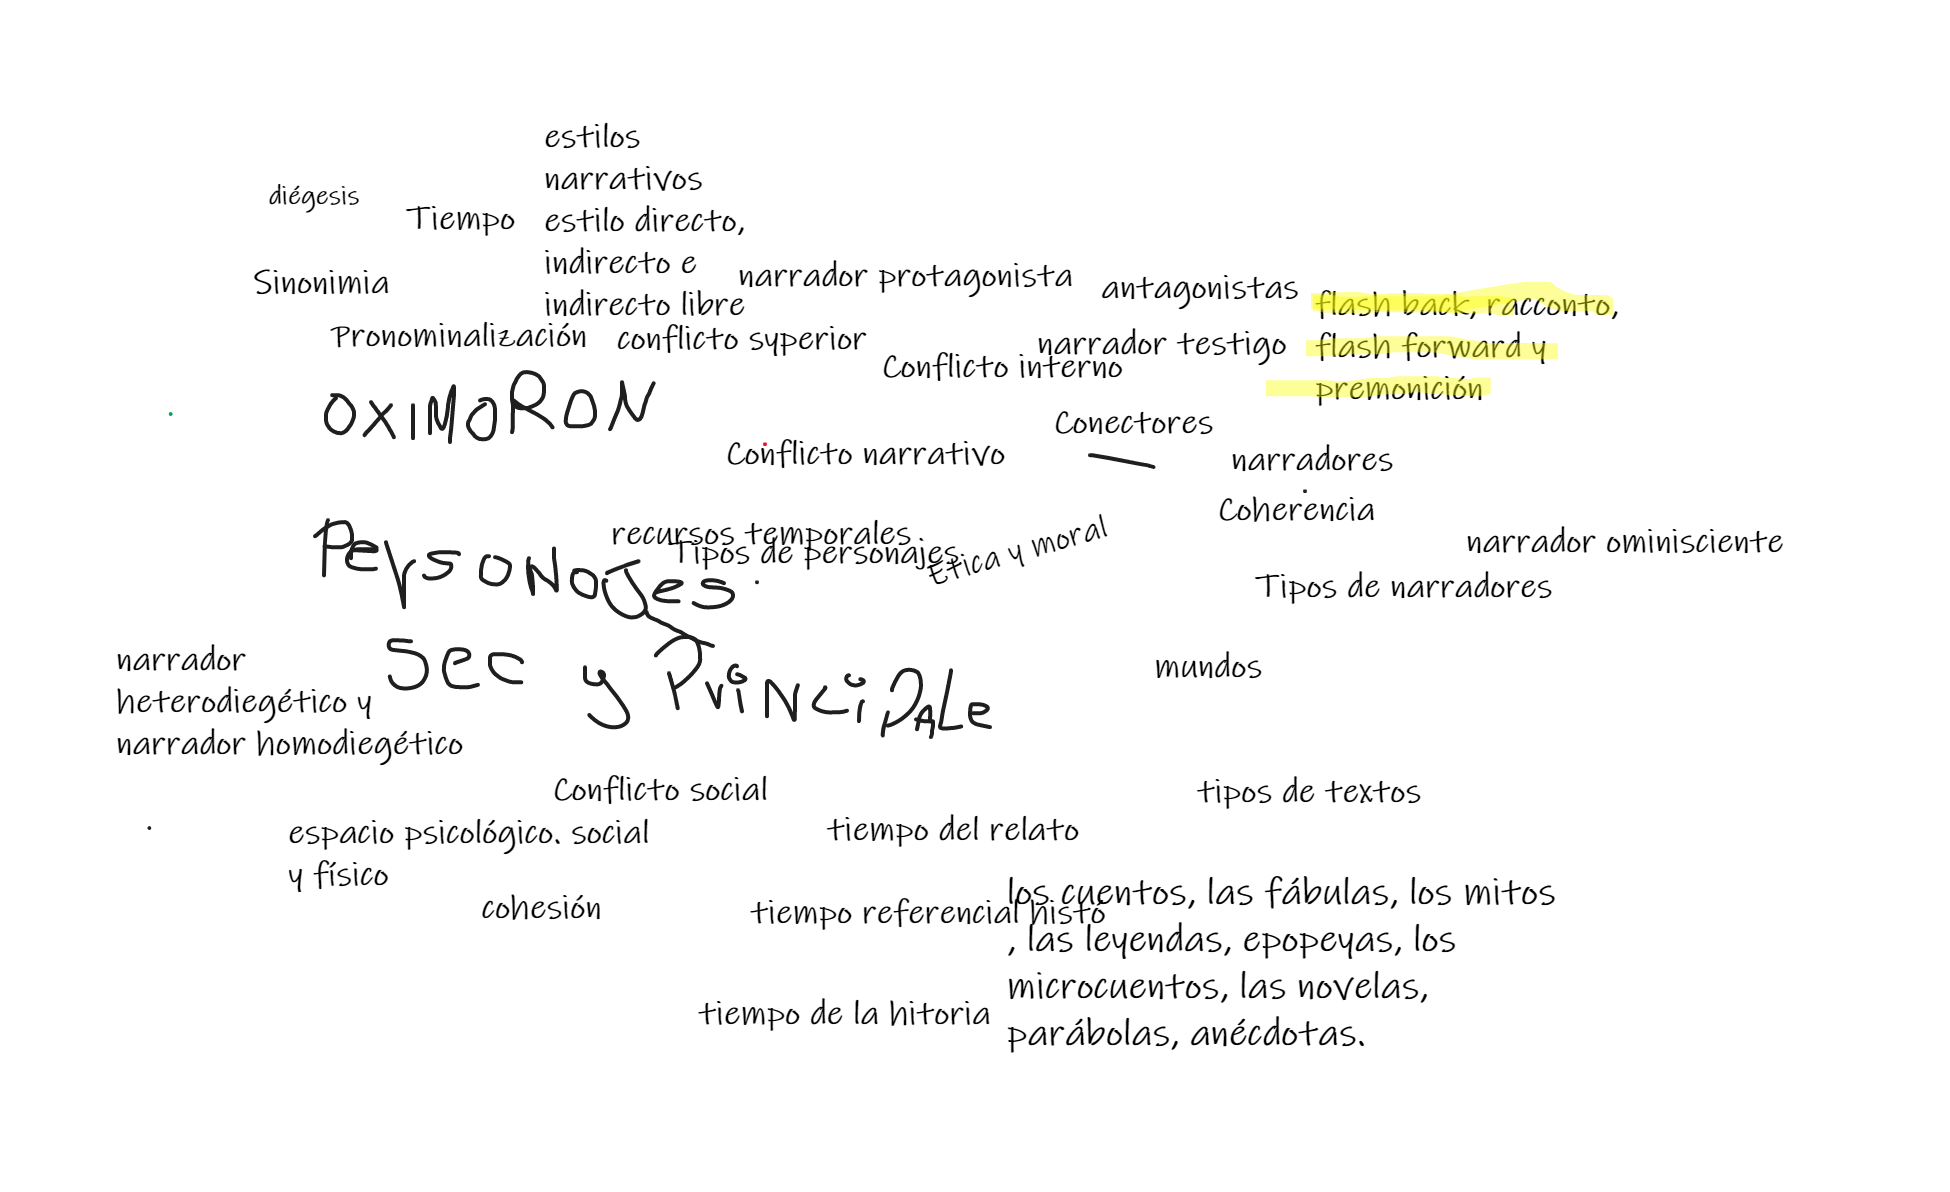 estilos
narrativos
estilo directo,
indirecto e
indirecto libre
diégesis
Tiempo
Sinonimia
narrador protagonista
antagonistas
flash back, racconto,
flash forward y
premonición
Pronominalización
conflicto superior
narrador testigo
Conflicto interno
OXIMORON
Conectores
Conflicto narrativo
narradores
Coherencia
recursos temporales
Tipos de personajes
Etica y moral
narrador ominisciente
Personajes
Tipos de narradores
sec y principale
narrador
heterodiegético y
narrador homodiegético
mundos
Conflicto social
tipos de textos
espacio psicológico. social
y físico
tiempo del relato
cohesión
tiempo referencial histó
los cuentos, las fábulas, los mitos
, las leyendas, epopeyas, los
microcuentos, las novelas,
parábolas, anécdotas.
tiempo de la hitoria